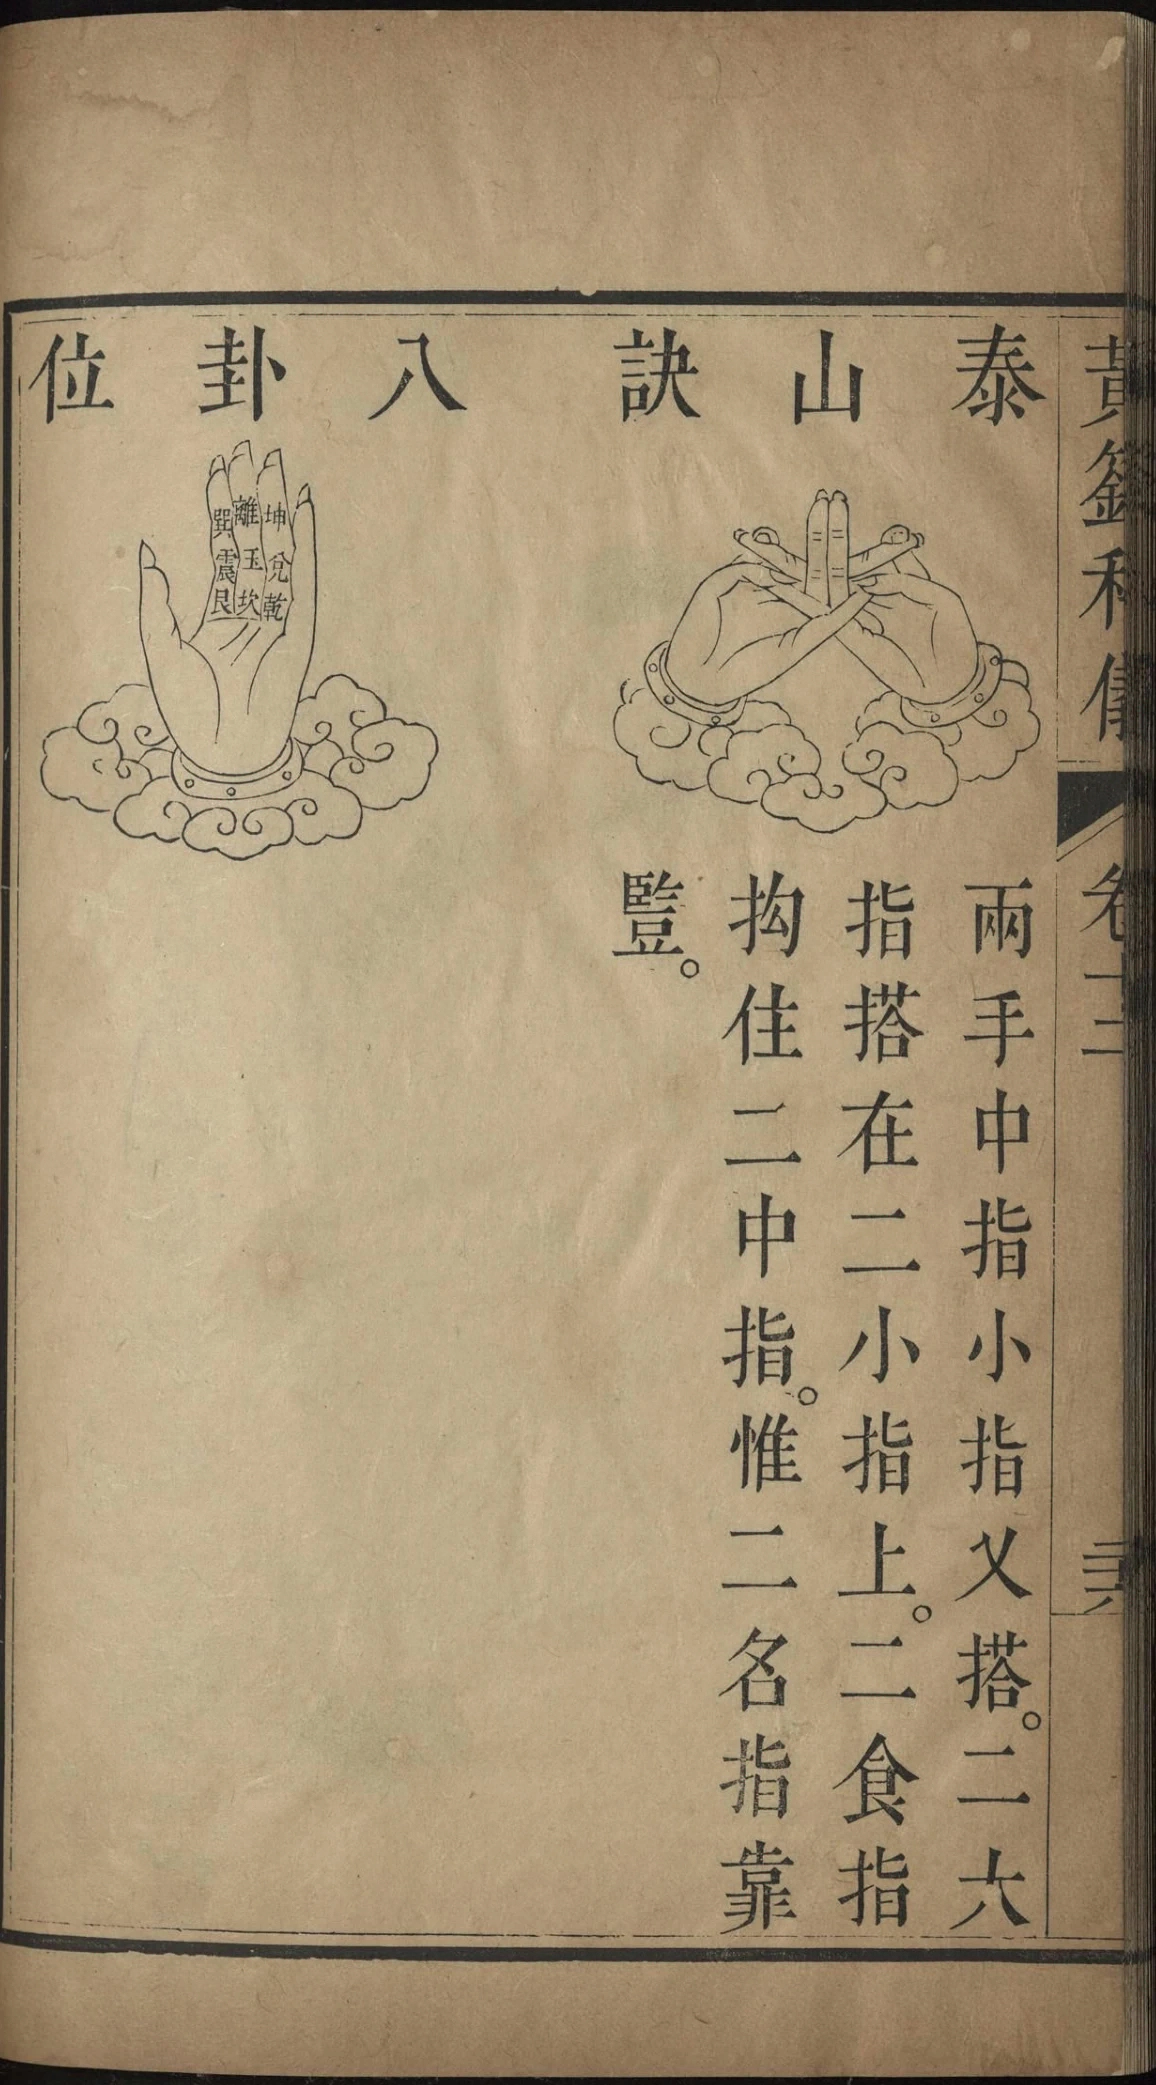 黃籙科儀
卷十二
泰山訣
兩手中指小指乂搭。二大
指搭在二小指上。二食指
抅住二中指。惟二名指靠
豎。
八卦位
坤兌乾
離玉坎
巽震艮